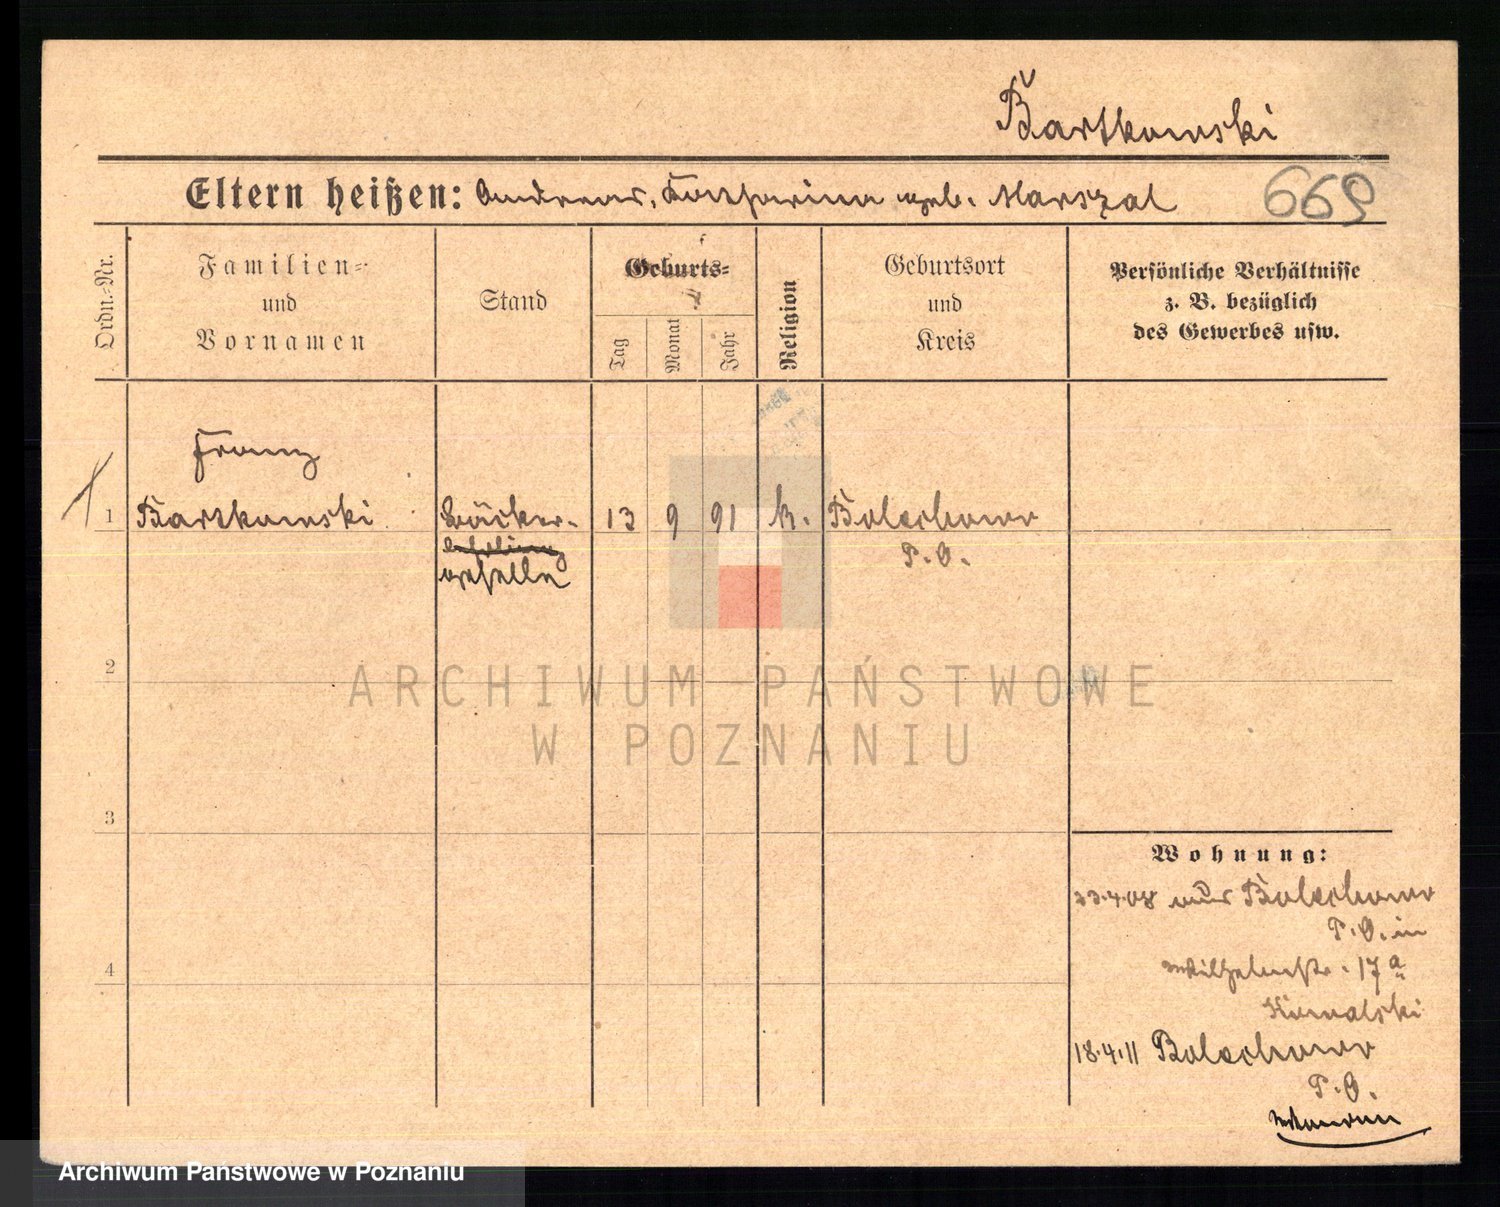 Bartkowski
Eltern heißen: Andreas, Katharina geb. Marszal
669
Ordn.-Nr.
Familien-
und
Vornamen
Stand
Geburts-
Tag
Monat
Jahr
Religion
Geburtsort
und
Kreis
Persönliche Verhältnisse
z. B. bezüglich
des Gewerbes usw.
Franz
1 Bartkowski Bäcker- 13 9 91 k. Bolechowo
lehrling P.O.
geselle
2
3
4
ARCHIWUM PAŃSTWOWE
W POZNANIU
Wohnung:
23.4.08 aus Bolechowo
P.O. in
Wilhelmstr. 17a
Kowalski
18.4.11 Bolechowo
P.O.
Archiwum Państwowe w Poznaniu